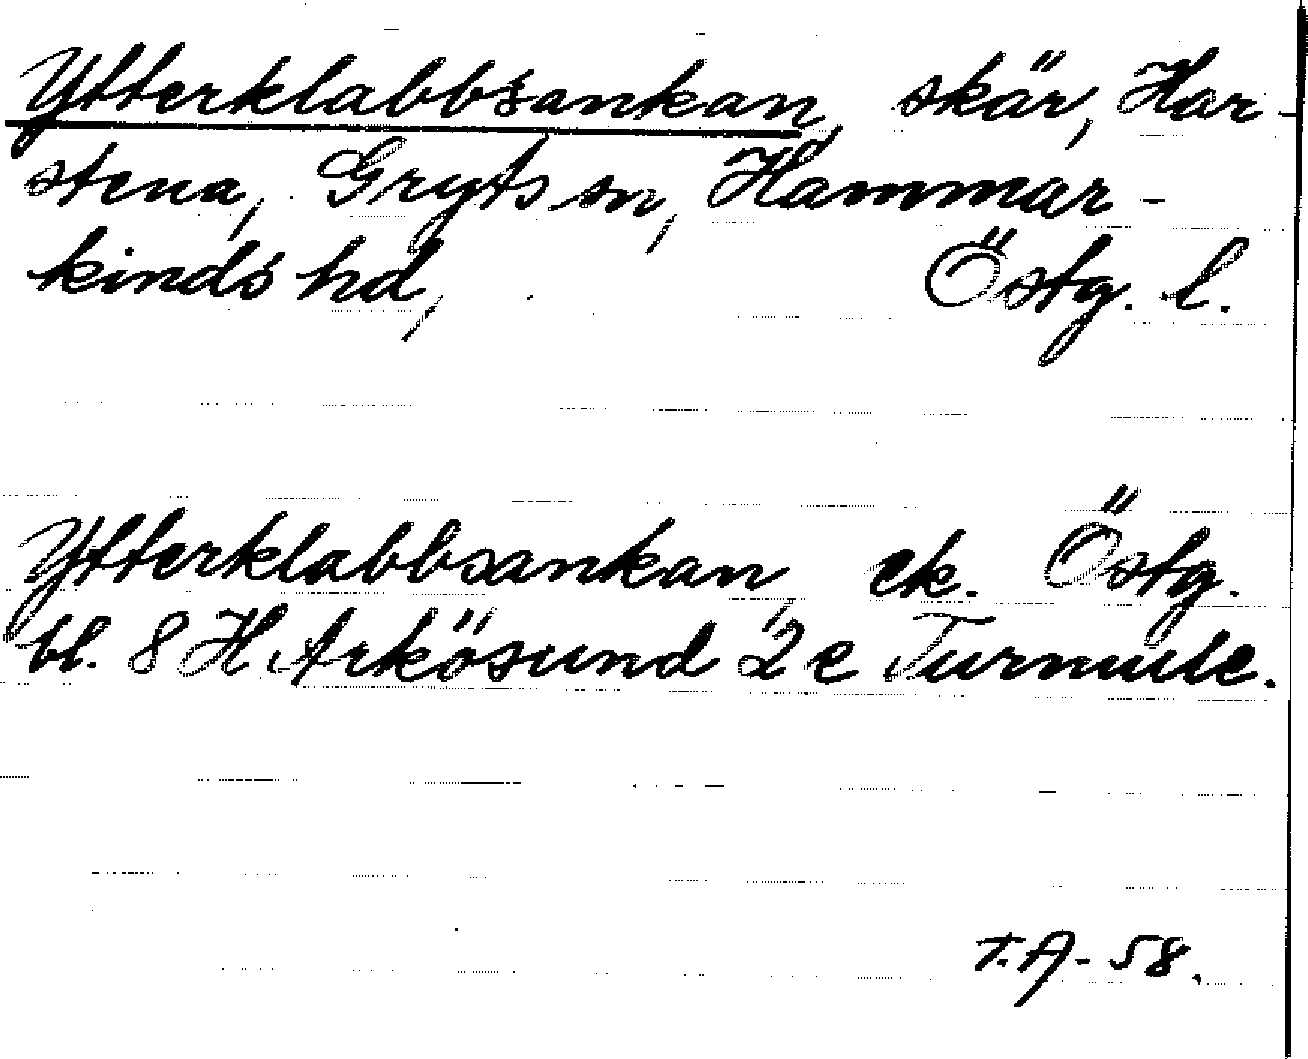 Ytterklabbsankan, skär, Har-
stena, Gryts sn, Hammar-
kinds hd, Östg. l.
Ytterklabbsankan, ek. Östg.
bl. 8 H Arkösund 2 e Turmule.
T.A-58.